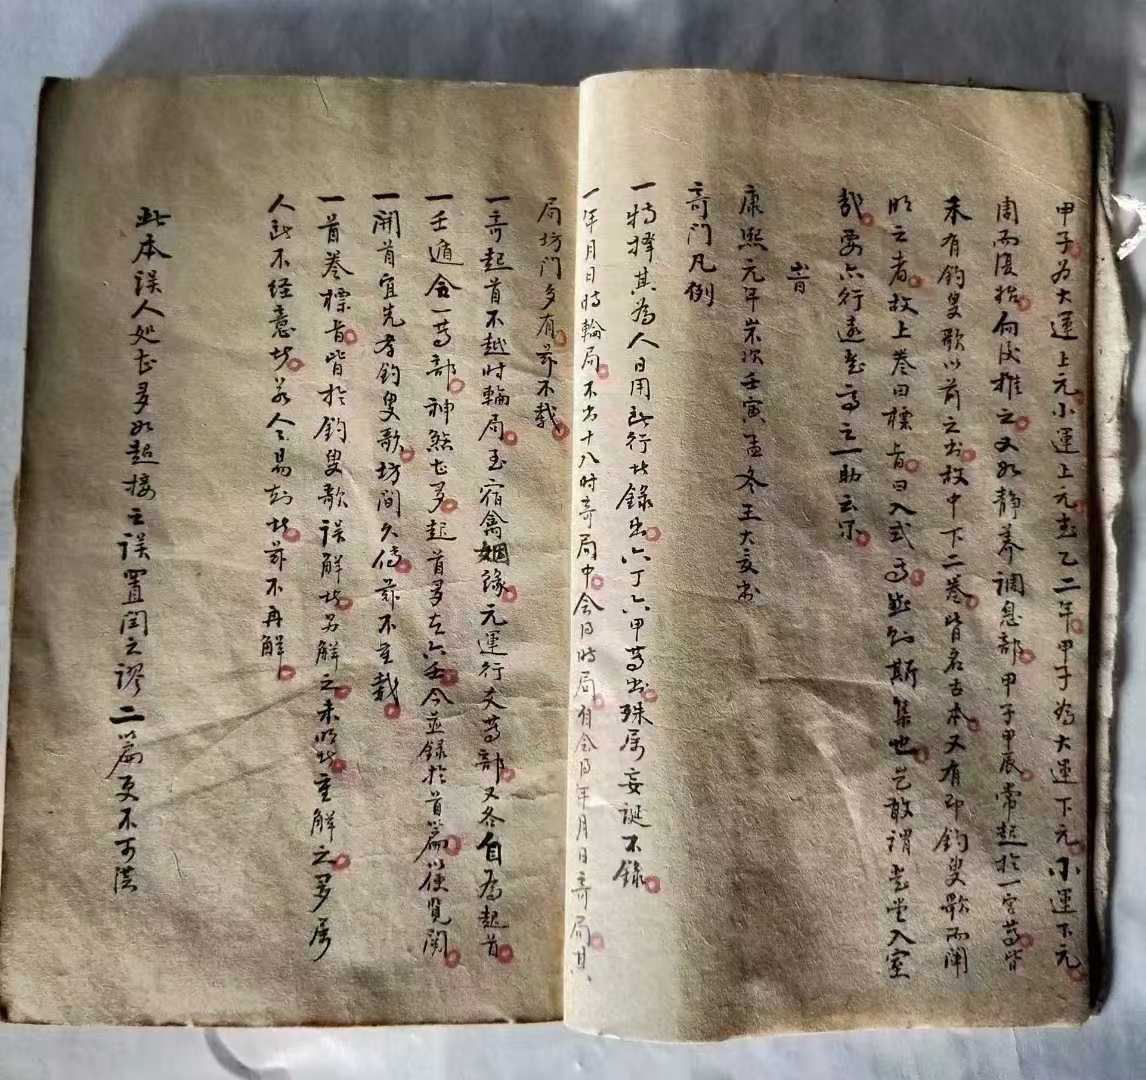 甲子为大運上元小運上元起乙二年甲子為大運下元小運下元
周而復始向後推之又如静养調息部甲子甲辰常起於一宫等皆
未有釣叟歌以前之书故中下二卷皆名古本又有即釣叟歌而闡
明之者故上卷曰標旨曰入式斯集也豈敢謂堂入室
哉要六行遠登高之一助云尔
旹
康熙元年岁次壬寅孟冬王大亥书
奇门凡例
一特择其為人日用此行者錄出六丁六甲等书殊属妄誕不錄
一年月日时輪局不出十八时奇局中会得时局有会得年月日奇局其
局坊門多有兹不載
一奇起首不越时輪局至宿禽姻缘元運行爻等部又各自為起首
一壬遁会一等部神煞甚多起首多在六壬今並録於首篇以便覧閱
一開首宜先看釣叟歌坊間久傳兹不重裁
一首卷標旨皆於釣叟歌误解者另解之未明者重解之多属
人所不经意者若人人易知者兹不再解
此本误人处甚多如超接之误置闰之謬二篇更不可洪